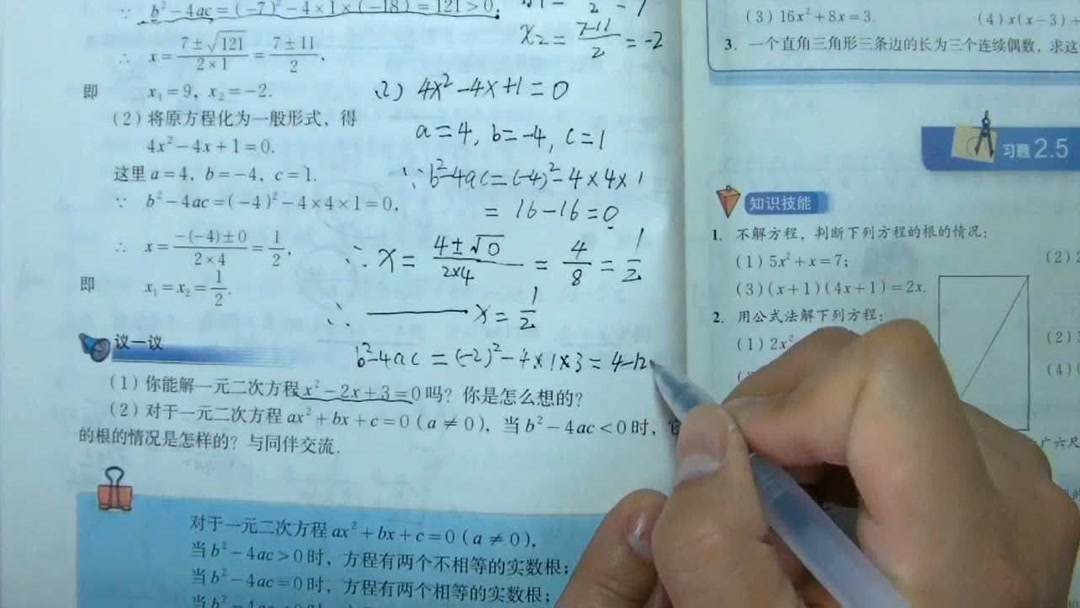 ∵ b²-4ac=(-7)²-4×1×(-18)=121>0,
∴ x=\frac{7±\sqrt{121}}{2×1}=\frac{7±11}{2},
即 x₁=9, x₂=-2.
(2)将原方程化为一般形式,得
4x²-4x+1=0.
这里a=4, b=-4, c=1.
∵ b²-4ac=(-4)²-4×4×1=0,
∴ x=\frac{-(-4)±0}{2×4}=\frac{1}{2},
即 x₁=x₂=\frac{1}{2}.
议一议
(1)你能解一元二次方程x²-2x+3=0吗?你是怎么想的?
(2)对于一元二次方程ax²+bx+c=0(a≠0),当b²-4ac<0时,它
的根的情况是怎样的?与同伴交流.
对于一元二次方程ax²+bx+c=0(a≠0),
当b²-4ac>0时,方程有两个不相等的实数根;
当b²-4ac=0时,方程有两个相等的实数根;
x₂=\frac{7-11}{2}=-2
(2) 4x²-4x+1=0
a=4, b=-4, c=1
∵b²-4ac=(-4)²-4×4×1
=16-16=0
∴x=\frac{4±\sqrt{0}}{2×4}=\frac{4}{8}=\frac{1}{2}
∴ x=\frac{1}{2}
b²-4ac=(-2)²-4×1×3=4-12
(3)16x²+8x=3.
(4)x(x-3)+
3. 一个直角三角形三条边的长为三个连续偶数,求这
习题2.5
知识技能
1. 不解方程,判断下列方程的根的情况:
(1)5x²+x=7;
(3)(x+1)(4x+1)=2x.
2. 用公式法解下列方程:
(1)2x²
广六尺